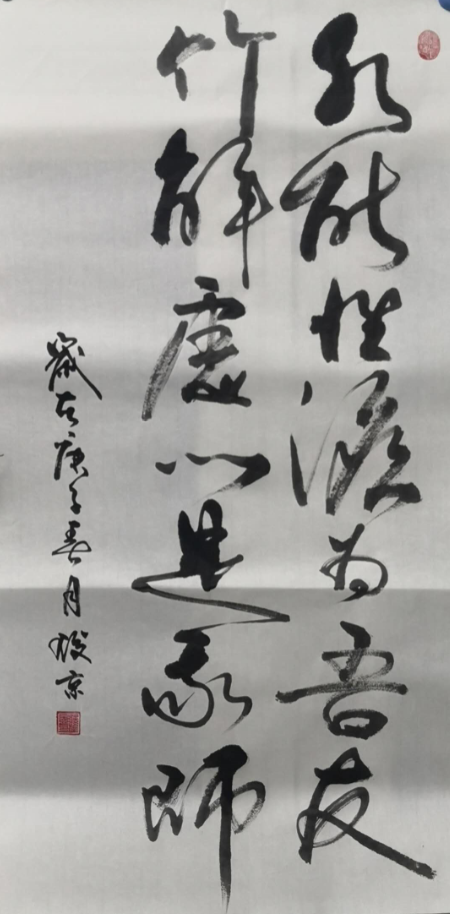 水能性淡为吾友
竹解虚心是我師
歲在庚子春月京